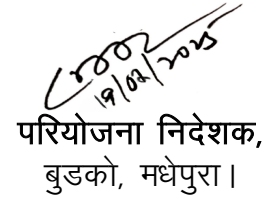 19/02/2025
परियोजना निदेशक,
बुडको, मधेपुरा।